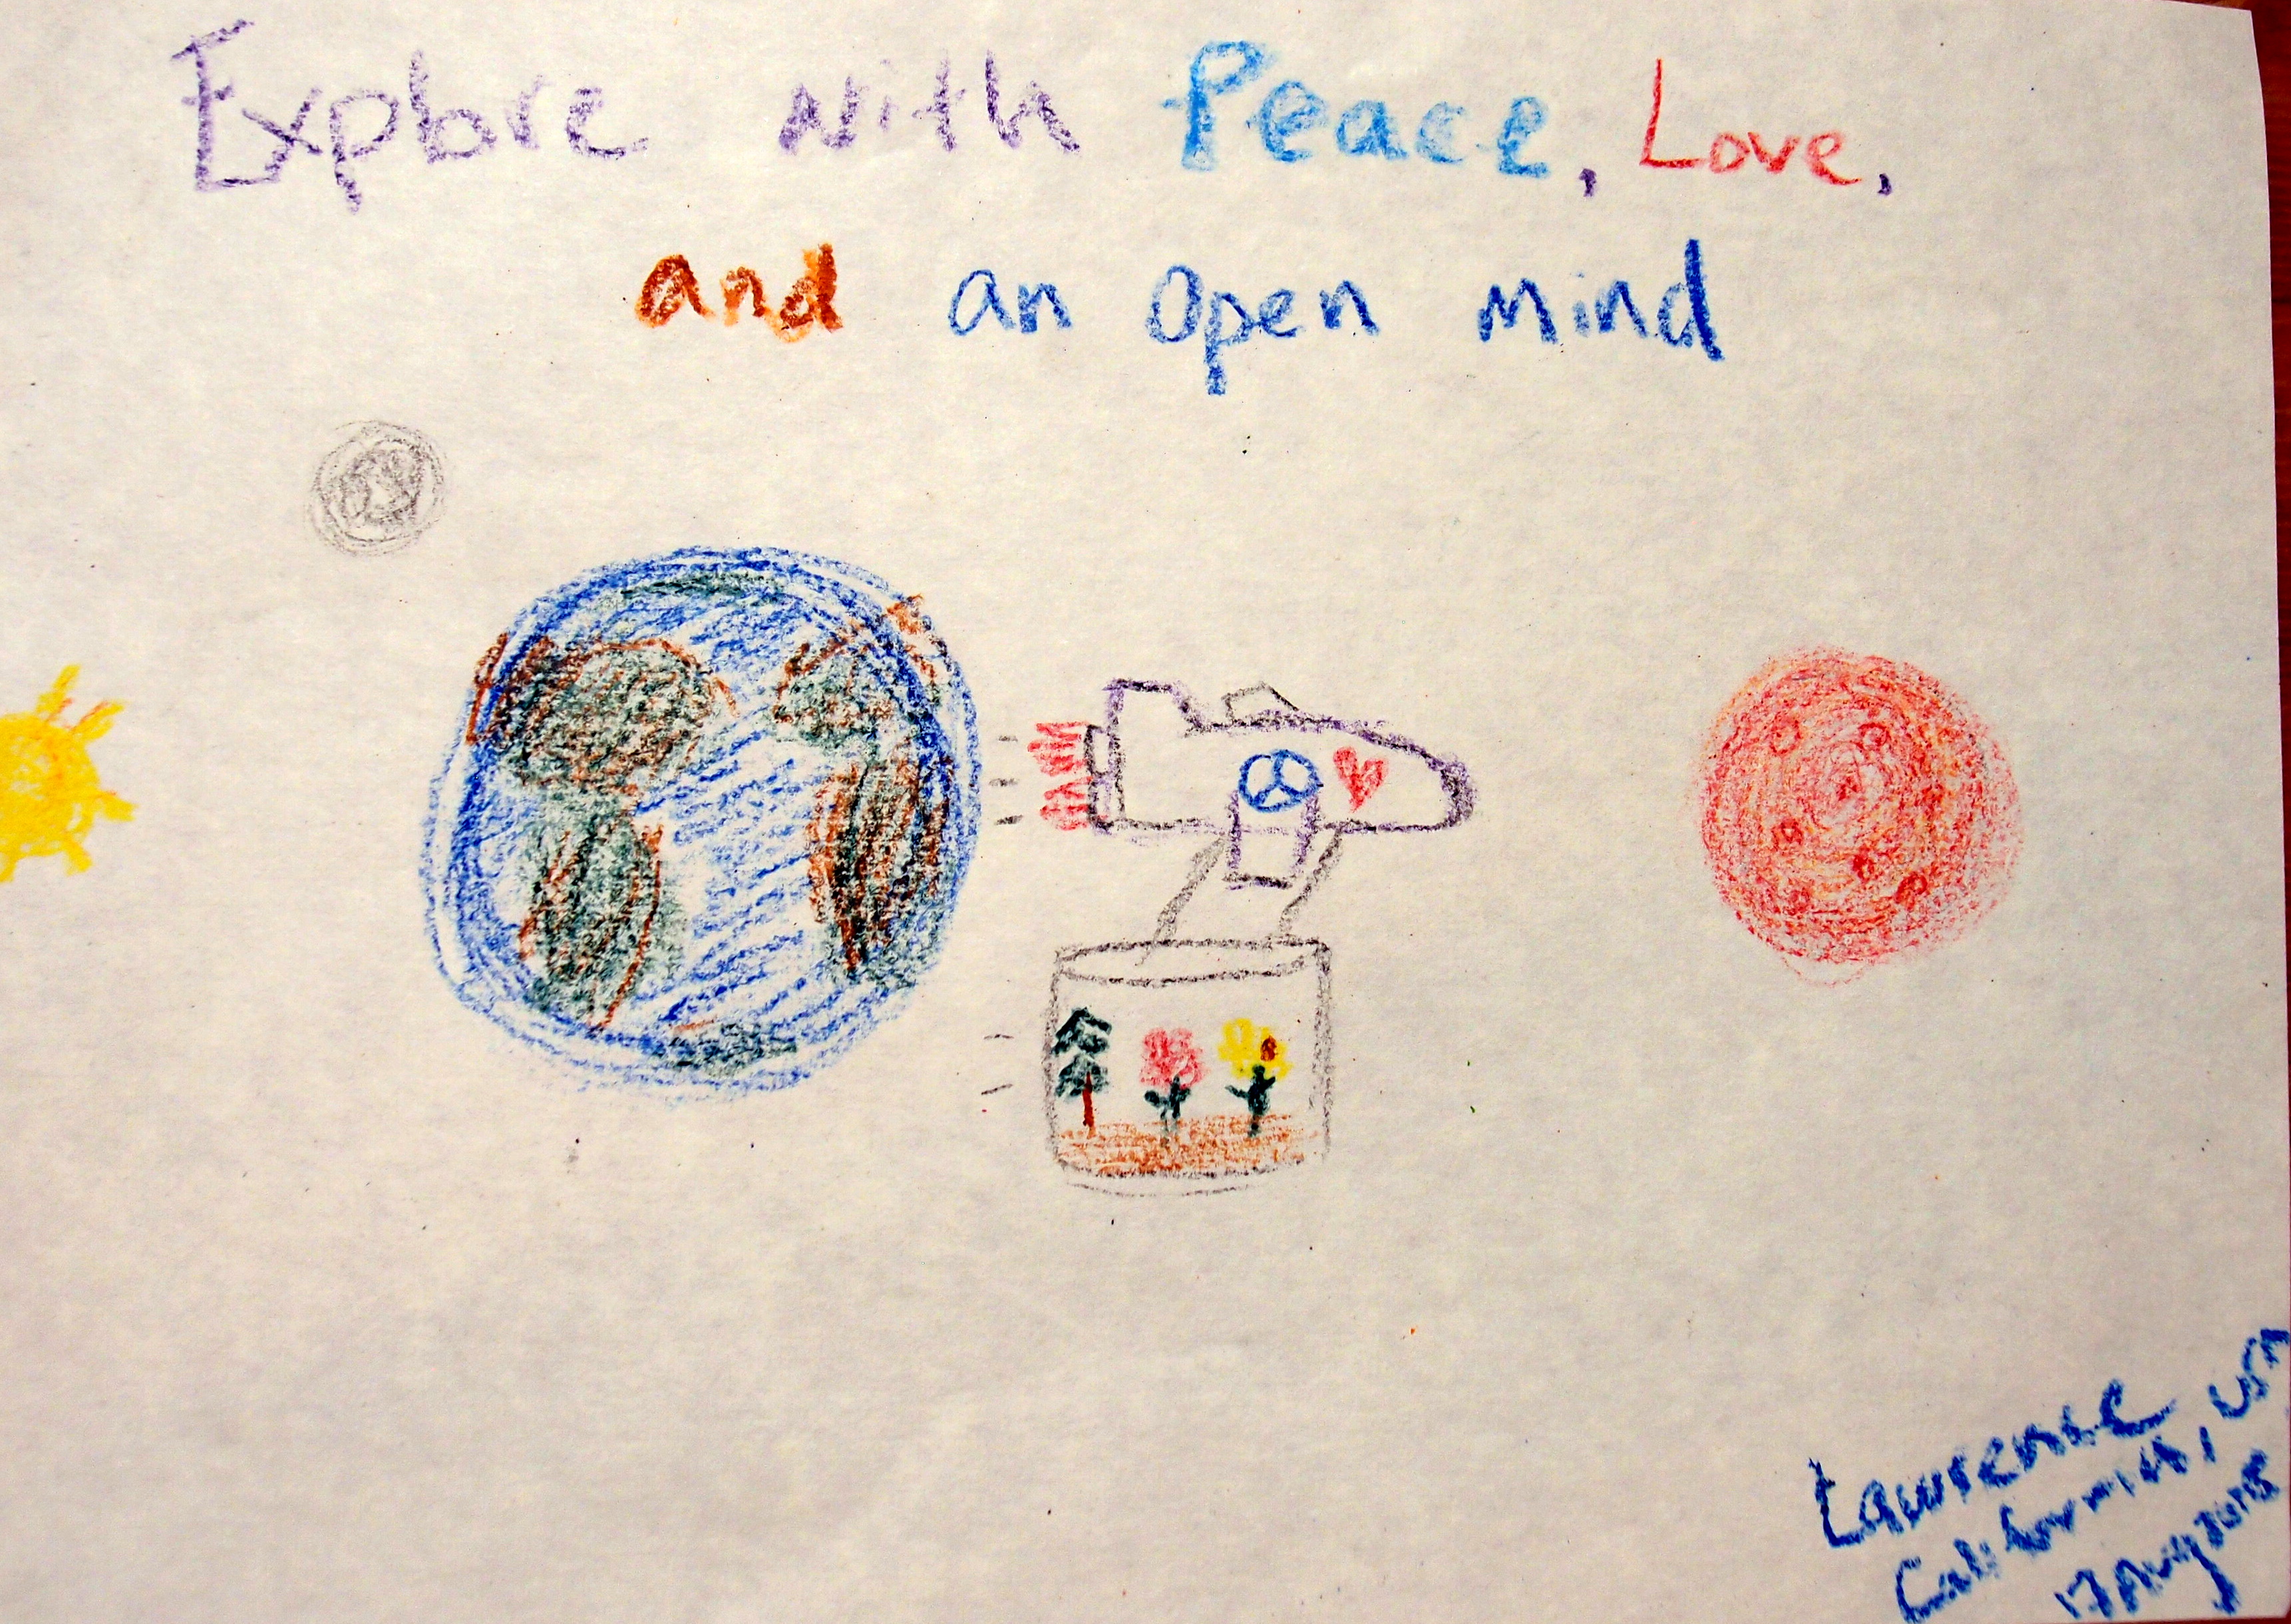 Explore with Peace, Love,
and an open mind
Lawrence
California, USA
17 Aug 2015